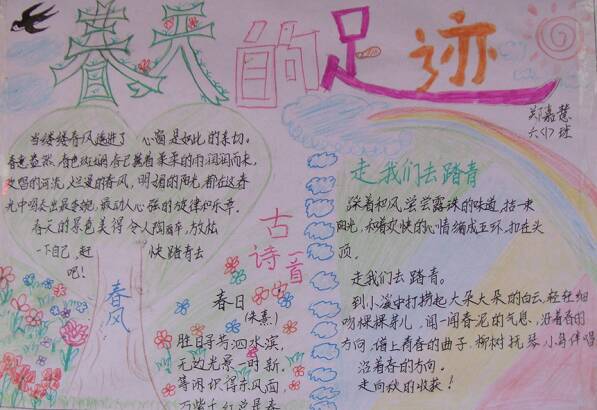 春天的足迹
郑嘉慧
六(1)班
当缕缕春风透进了 心窗是如此的亲切。
春意盎然,春色斑斓,春已载着柔柔的雨润润而来,
的河流,烂漫的春风,明媚的阳光,都在这春
光中唱出最美妙,最动人心弦的旋律和乐章。
春天的景色美得令人陶醉,放松
一下自己,赶 快踏青去
吧!
春风
古诗一首
春日
(朱熹)
胜日寻芳泗水滨,
无边光景一时新。
等闲识得东风面,
万紫千红总是春
走我们去踏青
踩着和风尝尝露珠的味道,掐一束
阳光,和着欢快的心情编成花环,扣在头
顶。
走我们去踏青。
到小溪中打捞起大朵大朵的白云,轻轻细
吻棵棵芽儿,闻一闻春泥的气息,沿着春的
方向,借上青春的曲子,柳树抚琴,小鸟伴唱
沿着春的方向。
走向秋的收获!